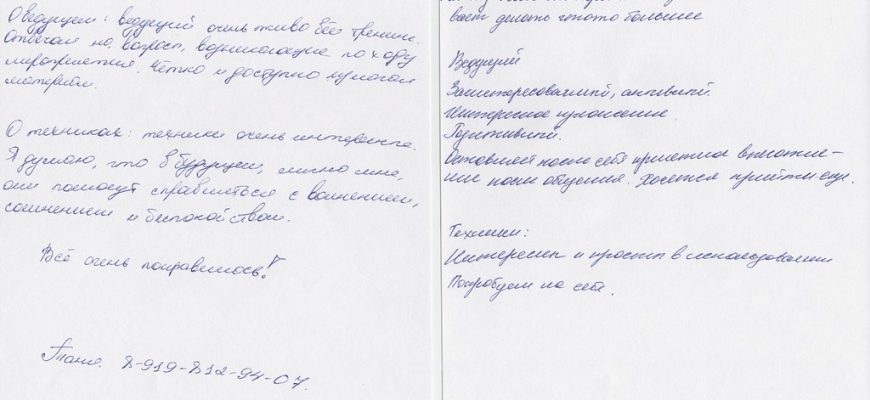 О ведущем: ведущий очень живо вёл тренинг.
Отвечал на вопросы, возникающие по ходу
мероприятия. Чётко и доступно излагал
материал.
О техниках: техники очень интересные.
Я думаю, что в будущем, лично мне,
они помогут справляться с волнением,
сомнением и беспокойством.
Всё очень понравилось!
Таня. 8-919-812-94-07.
вает делать что-то большее
Ведущий
Заинтересованный, активный.
Интересное изложение.
Позитивный.
Оставляет после себя приятное впечатле-
ние после общения. Хочется прийти еще.
Техники:
Интересны и просты в использовании
Попробуем на себе.